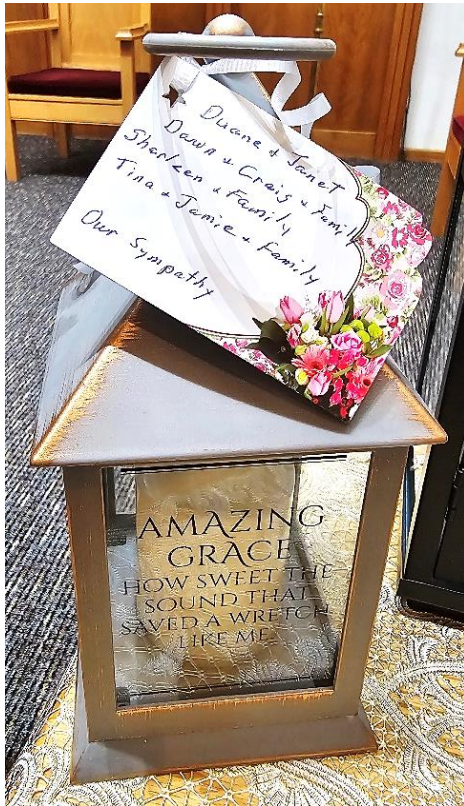 Duane + Janet
Dawn + Craig + Family
Sharleen + Family
Tina + Jamie + Family
Our Sympathy
AMAZING
GRACE
HOW SWEET THE
SOUND THAT
SAVED A WRETCH
LIKE ME